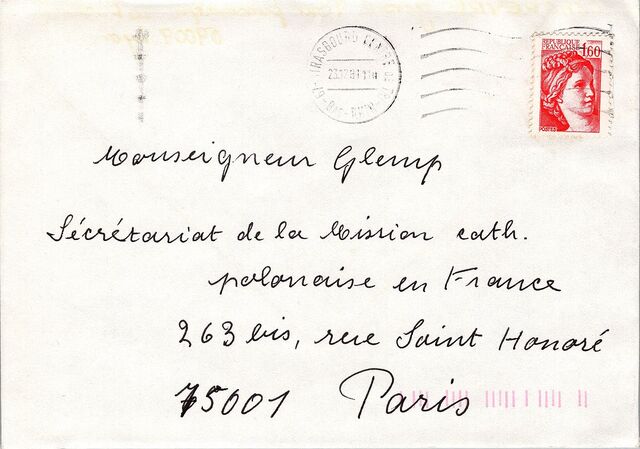 STRASBOURG
RÉPUBLIQUE
FRANÇAISE
1,60
POSTES
Monseigneur Glemp
Sécrétariat de la Mission cath.
polonaise en France
263 bis, rue Saint Honoré
75001 Paris